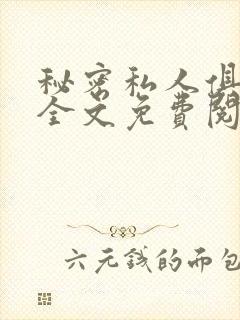 秘密私人俱
全文免費閱
六元钱的面包